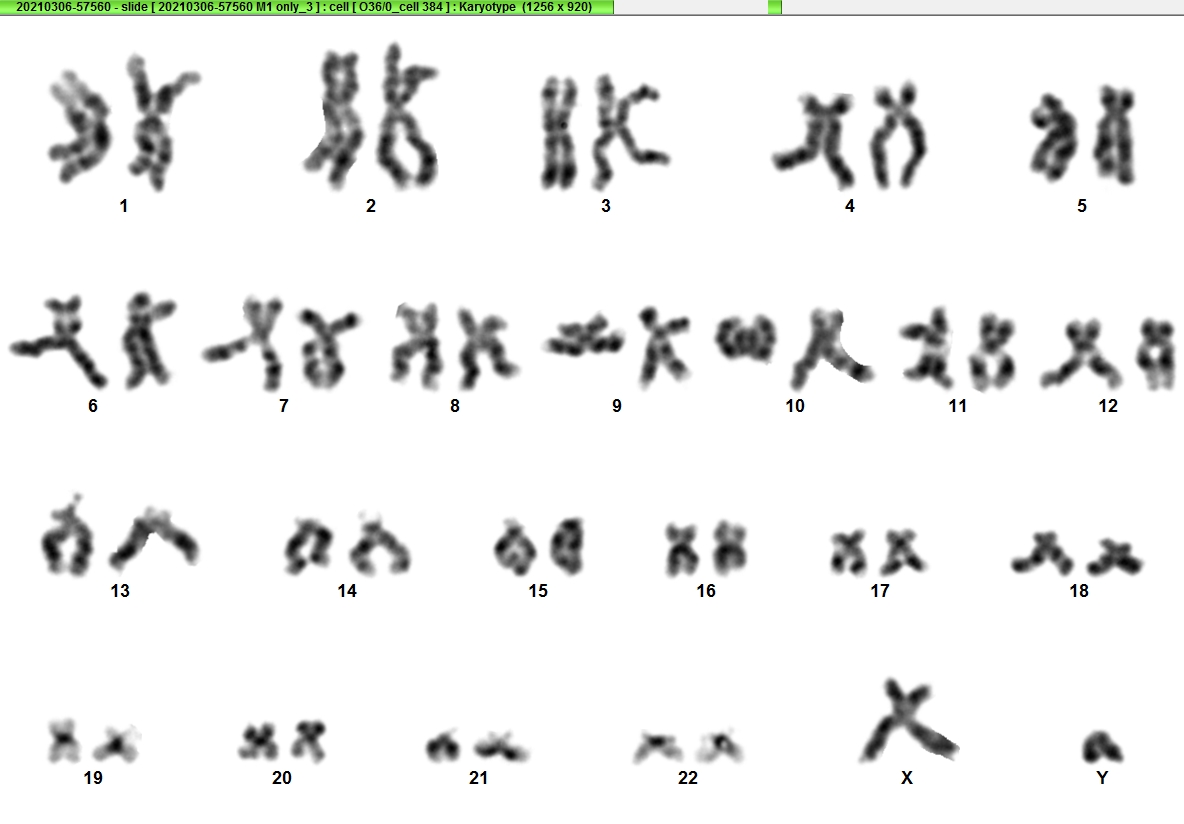 20210306-57560 - slide [ 20210306-57560 M1 only_3 ] : cell [ O36/0_cell 384 ] : Karyotype (1256 x 920)
1 2 3 4 5
6 7 8 9 10 11 12
13 14 15 16 17 18
19 20 21 22 X Y